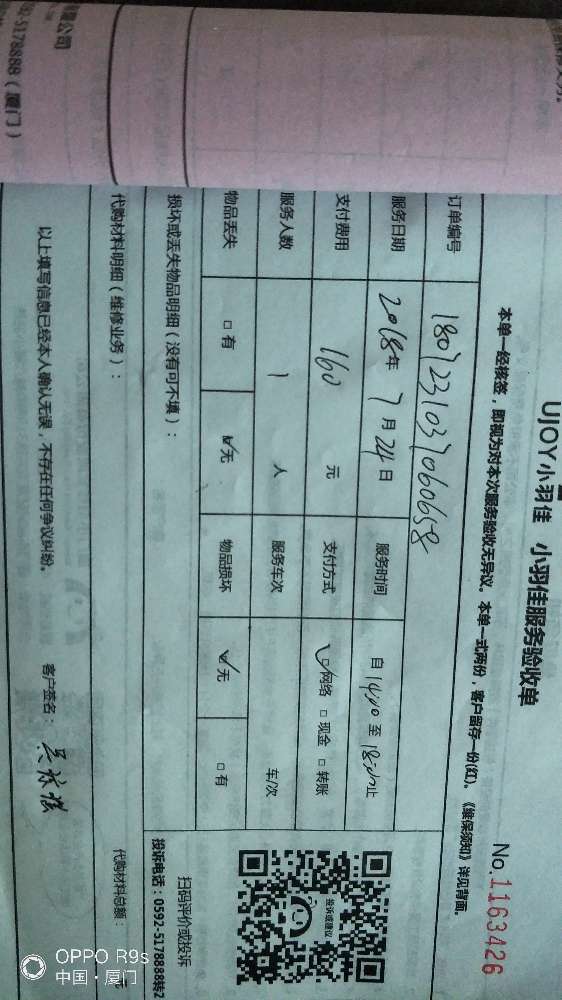 限公司
92-5178888（厦门）
UJOY小羽佳 小羽佳服务验收单
No.1163426
本单一经核签，即视为对本次服务验收无异议。本单一式两份，客户留存一份(红)。《维保须知》详见背面。
订单编号 180723103706065​8
服务日期 2018年7月24日 服务时间 自14:00至18:00止
支付费用 160 元 支付方式 ☑网络 □现金 □转账
服务人数 1 人 服务车次 车/次
物品丢失 □有 ☑无 物品损坏 ☑无 □有
损坏或丢失物品明细（没有可不填）：
代购材料明细（维修业务）：
代购材料总额： 元
以上填写信息已经本人确认无误，不存在任何争议纠纷。
客户签名：
投诉或建议
扫码评价或投诉
投诉电话：0592-5178888转2
OPPO R9s
中国·厦门